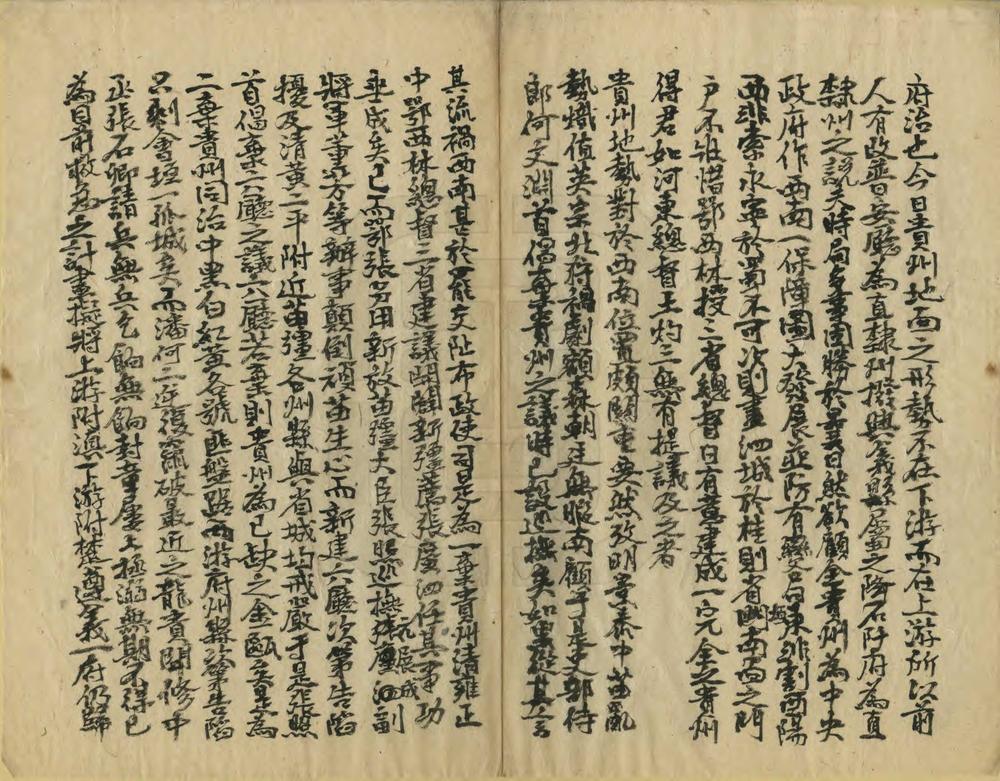 府治也今日貴州地面之形勢不在下游而在上游所以前
人有改普安廳為直隸州撥興義縣屬之降石阡府為直
隸州之說矣時局多事團勝於曩日然欲顧全貴州為中央
政府作西南一保障圖大發展並防有變且東北割酉陽
西北索永寧於蜀不可濟則畫泗城於桂則省西南為之門
戶不難惜鄂西林授三省總督日有意建成一完全之貴州
得君如河東總督王灼三無有提議及之者
貴州地勢對於西南位置頗關重要然考明景泰中苗亂
勢熾值英宗北狩禍劇顧森朝廷無暇南顧于是吏部侍
郎何文淵首倡棄貴州之議時已設巡撫矣如果從其言
其流禍西南甚於罷交阯布政使司是為一棄貴州清雍正
中鄂西林總督三省建議開闢新疆薦張廣泗任其事功
垂成矣已而鄂張另用新放苗疆大臣張照巡撫元展成副
將軍董芳等辦事顛倒頑苗生心而新建六廳次第告陷
擾及清黃二平附近苗疆各州縣與省城均戒嚴于是張照
首倡棄六廳之議六廳若棄則貴州為已缺之金甌矣是為
二棄貴州同治中黑白紅黃各號匪盤踞兩游府州縣淪亡告陷
只剩會垣一孤城矣而潘何二逆復竄破最近之龍貴開修中
丞張石卿請兵無兵乞餉無餉封章屢上極溺無期不得已
為目前救急之計畫擬將上游附滇下游附楚遵義一府仍歸